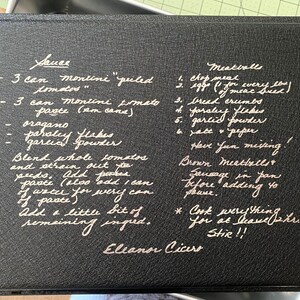 Sauce
- 3 can Montini "puled
tomatos"
- 3 can Montini tomato
paste (6m cans)
- oragano
- parsley flakes
- garlic powder
Blend whole tomatoes
and strain out the
seeds. Add
paste (also add 1 can
of water for every can
of paste)
Add a little bit of
remaining ingred.
Meatballs
1. chop meat
2. egg (1 for every lbs
of meat used)
3. bread crumbs
4. parsley flakes
5. garlic powder
6. salt & peper
Have fun mixing!
Brown Meatballs &
sausage in pan
before adding to
* Cook everything
for at least hrs
Stir!!
Eleanor Cicero